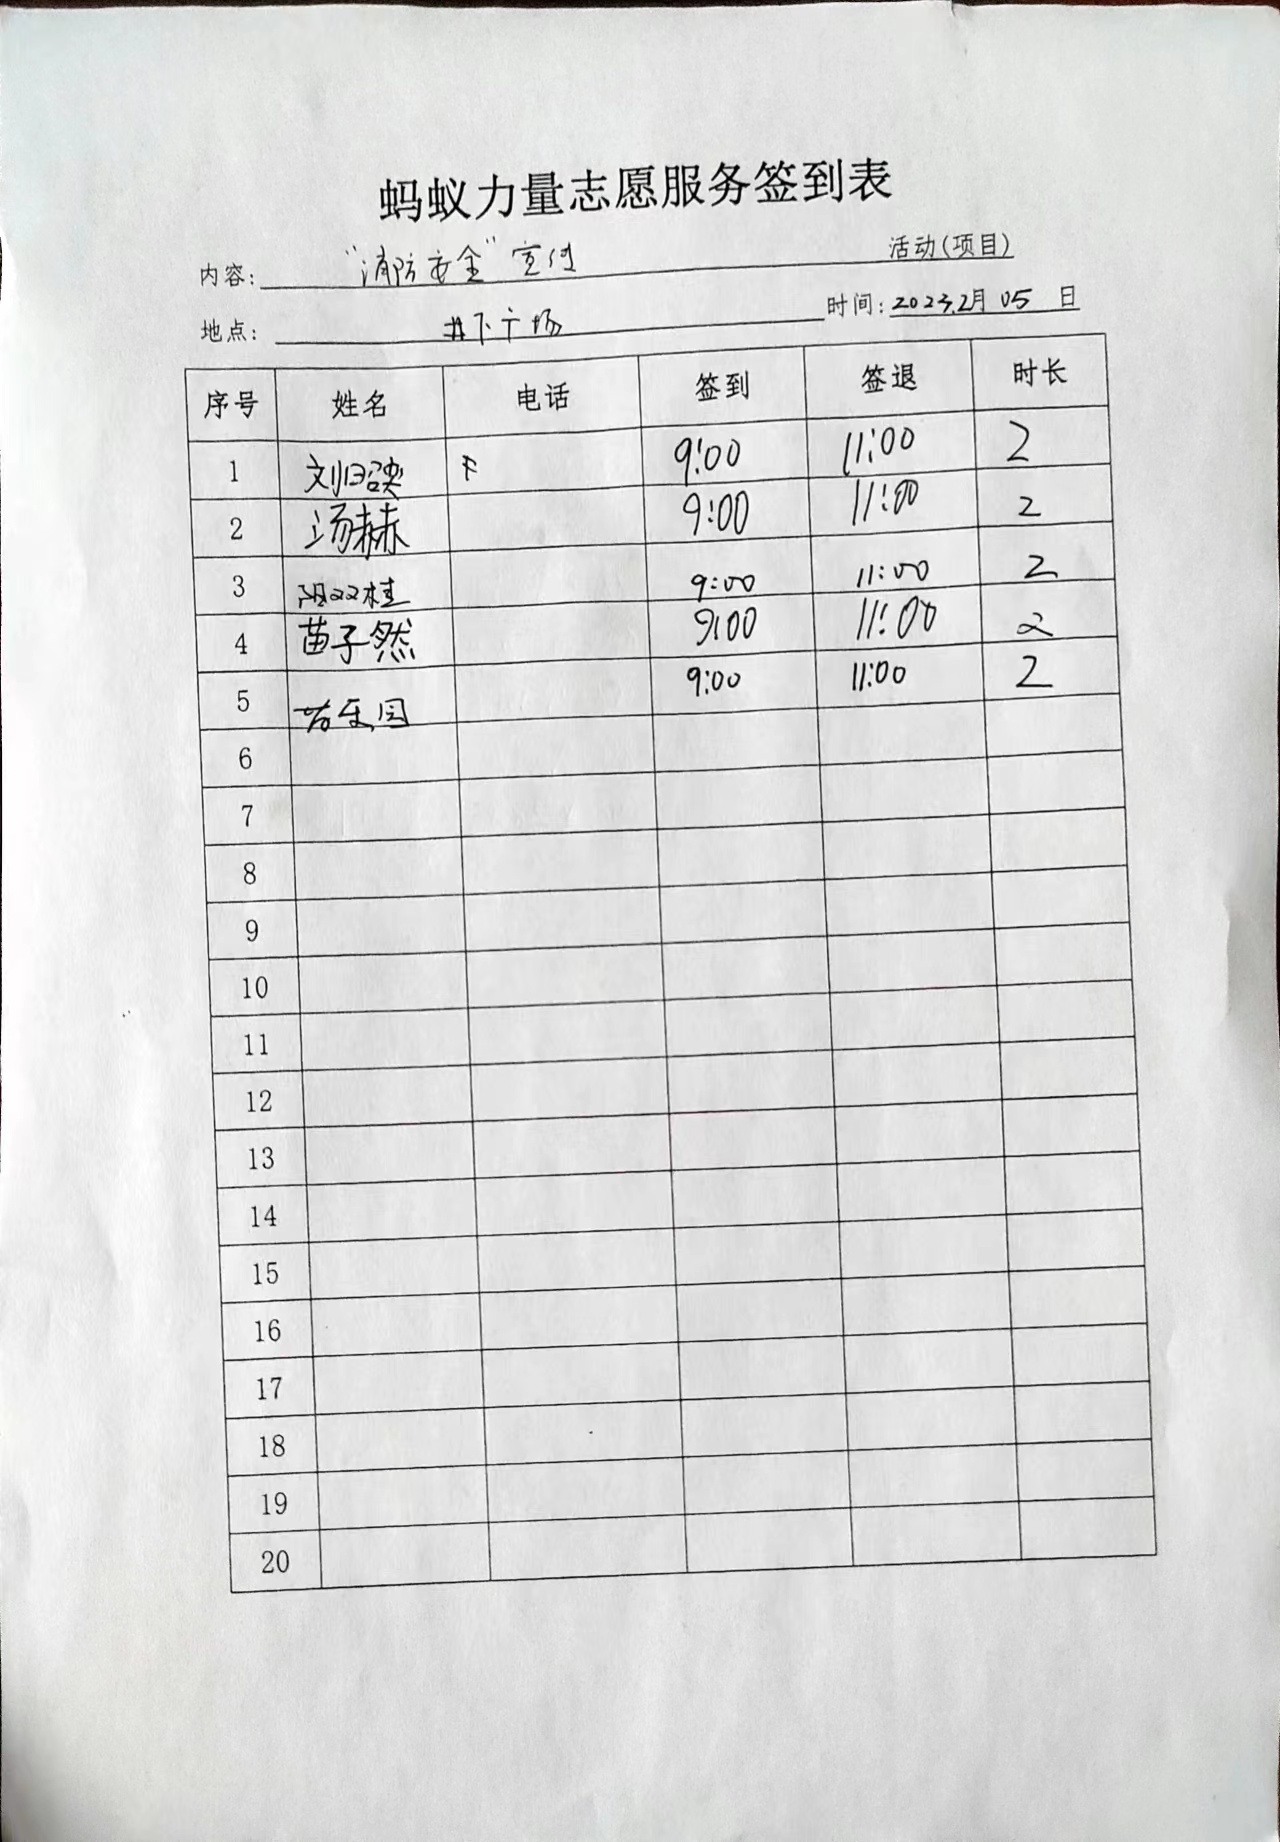 蚂蚁力量志愿服务签到表
内容: "消防安全"宣传 活动(项目)
地点: 井下广场 时间: 2023.2月 05 日
序号 姓名 电话 签到 签退 时长
1 刘 9:00 11:00 2
2 汤赫 9:00 11:00 2
3 阳双桂 9:00 11:00 2
4 苗子然 9:00 11:00 2
5 9:00 11:00 2
6
7
8
9
10
11
12
13
14
15
16
17
18
19
20